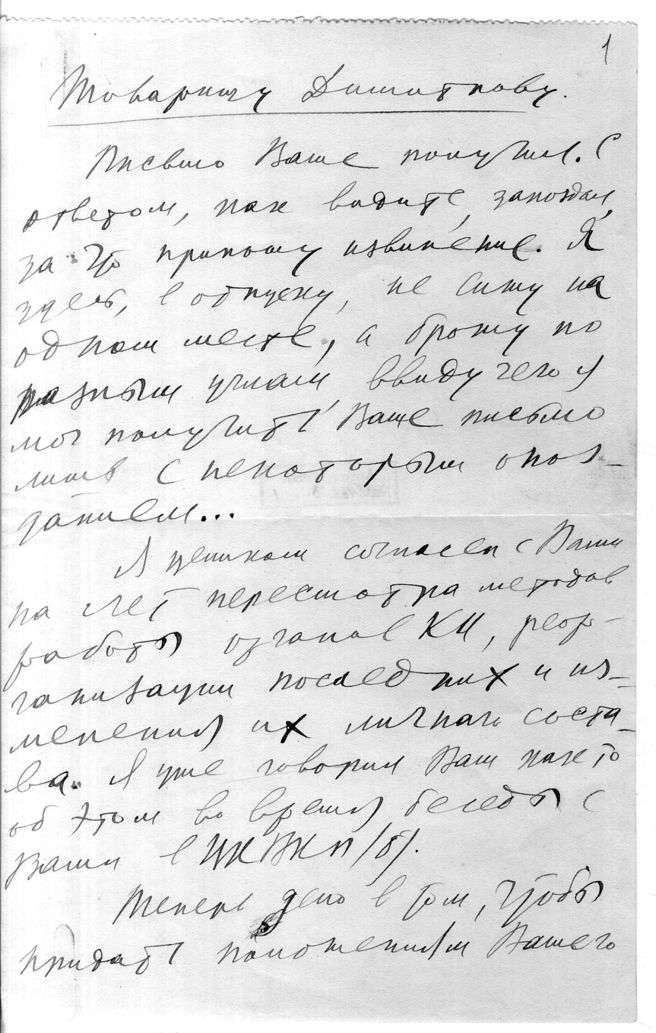 1
Товарищу Димитрову.
Письмо Ваше получил. С
ответом, как видите, запоздал,
за что приношу извинение. Я
здесь, в отпуску, не сижу на
одном месте, а брожу по
разным углам, ввиду чего я
мог получить Ваше письмо
лишь с некоторым опоз-
данием...
Я целиком согласен с Вами
насчет пересмотра методов
работы органов КИ, реор-
ганизации последних и из-
менения их личного соста-
ва. Я уже говорил Вам как-то
об этом во время беседы с
Вами в ЦК ВКП/б/.
Теперь дело в том, чтобы
придать положениям Вашего